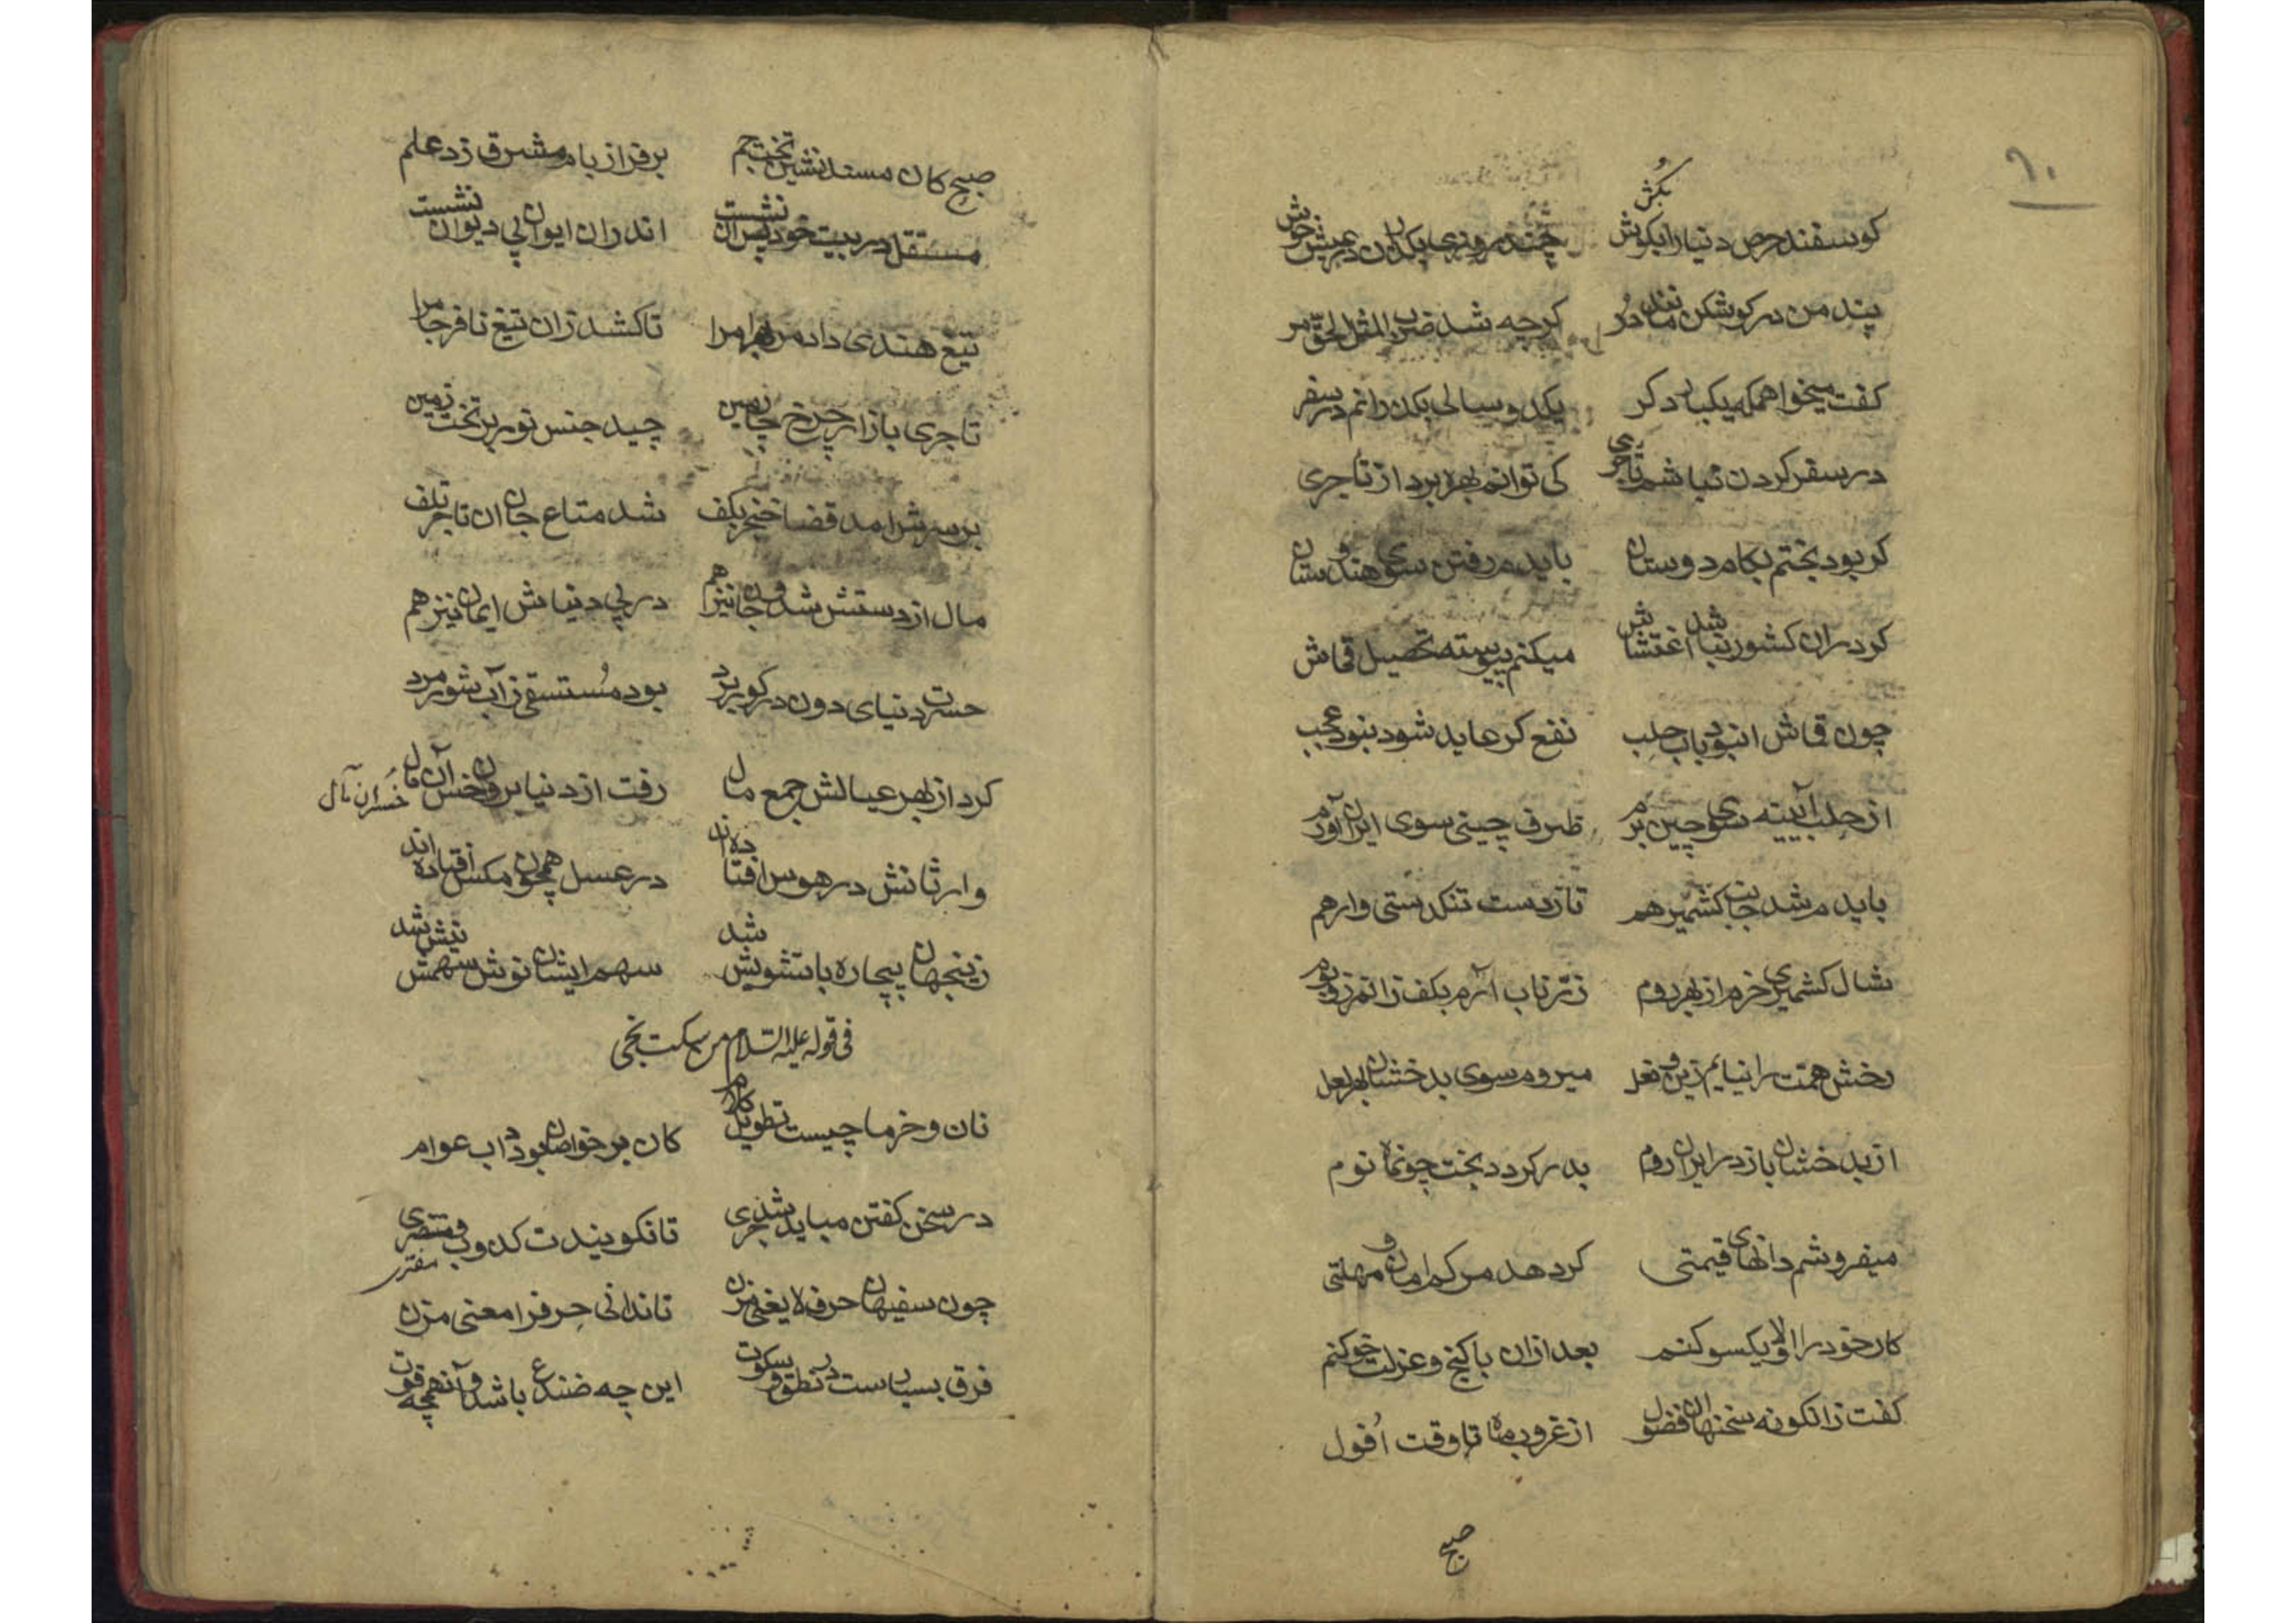 ٩٠
کوسفند حرص دنیا را بکش چند روزی بکذران در عیش خوش
پند من در کوش کن مانند در کرچه شد ضرب المثل الحق مر
کفت میخواهم که یکبار دکر یکدو سالی بکذرانم در سفر
در سفر کردن نباشم تا جری کی توانم بهره برد از تاجری
کر بود بختم بکام دوستان بایدم رفتن سوی هندوستان
کر دران کشور نباشد اغتشاش میکنم پیوسته تحصیل قماش
چون قماش انبود باب حلب نفع کر عاید شود نبود عجب
از حلب آیینه سوی چین برم ظرف چینی سوی ایران آورم
بایدم شد جانب کشمیر هم تا ز دست تنکدستی وارهم
شال کشمیری خرم از بهر روم زر ناب آرم بکف زانمرز و بوم
رخش همت را نیایم زین و نعل میروم سوی بدخشان بهر لعل
از بدخشان باز در ایران روم بدر کردد بخت چون ماه نوم
میفروشم دانهای قیمتی کر دهد مرکم امان و مهلتی
کار خود را اولا یکسو کنم بعد ازان با کنج و عزلت خو کنم
کفت زانکونه سخنهای فضول از غروب ماه تا وقت اُفول
صبح
صبح کان مسند نشین تخت جم بر فراز بام مشرق زد علم
مستقل در بیت خود پس آن نشست اندران ایوان پی دیوان نشست
تیغ هندی داد مر بهرام را تا کشد زان تیغ نافرجام را
تاجری بازار چرخ چارمین چید جنس نور بر تخت زمین
بر سرش امد قضا خنجر بکف شد متاع جان ان تاجر تلف
مال از دستش شد و جان نیز هم در پی دنیاش ایمان نیز هم
حسرت دنیای دون در کور برد بود مُستسقی ز آب شور مرد
کرد از بهر عیالش جمع مال رفت از دنیا برون خسران مآل
خُسران مآل
وارثانش در هوس افتاده اند در عسل همچون مکس افتاده اند
زینجهان بیچاره با تشویش شد سهم ایشان نوش سهمش نیش شد
فی قوله علیه السلام من سکت نجی
نان و خرما چیست تطویل کلام کان بر خواص بود داب عوام
در سخن کفتن مباید شد جری تا نکویندت کذوب و مفتری
مفتری
چون سفیهان حرف لا یغنی مزن تا ندانی حرف را معنی مزن
فرق بسیار است در نطق و سکوت این چه ضفدع باشد و آنهمچه قوت